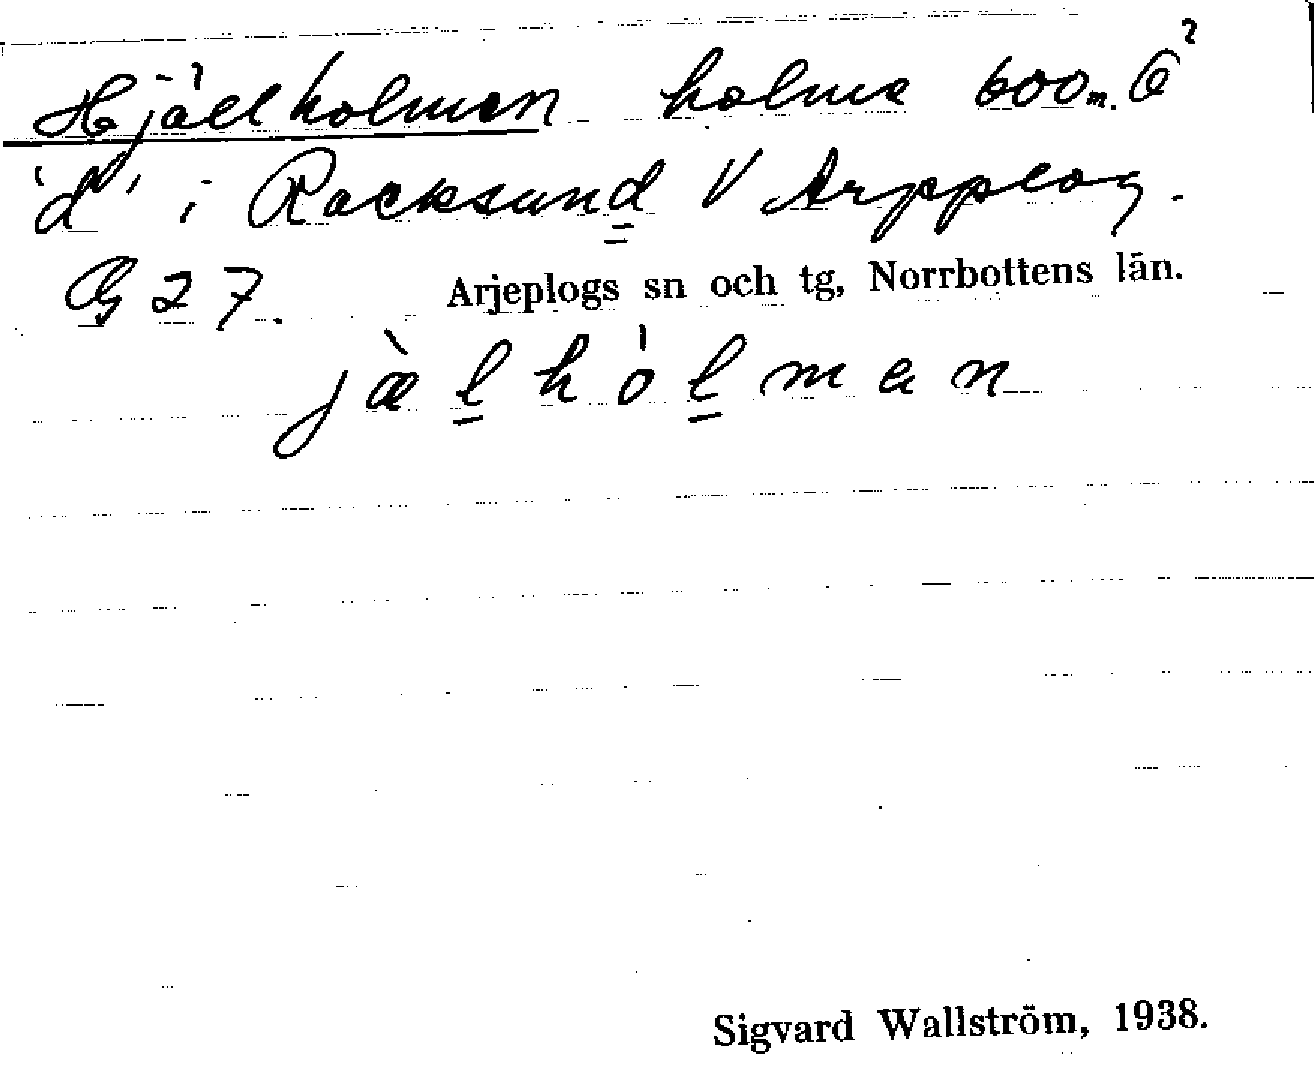 Hjällholmen holme 600m. Ö?
'd' i Racksund V Arjeplog.
G 27. Arjeplogs sn och tg, Norrbottens län.
jæ̀lhólman
Sigvard Wallström, 1938.